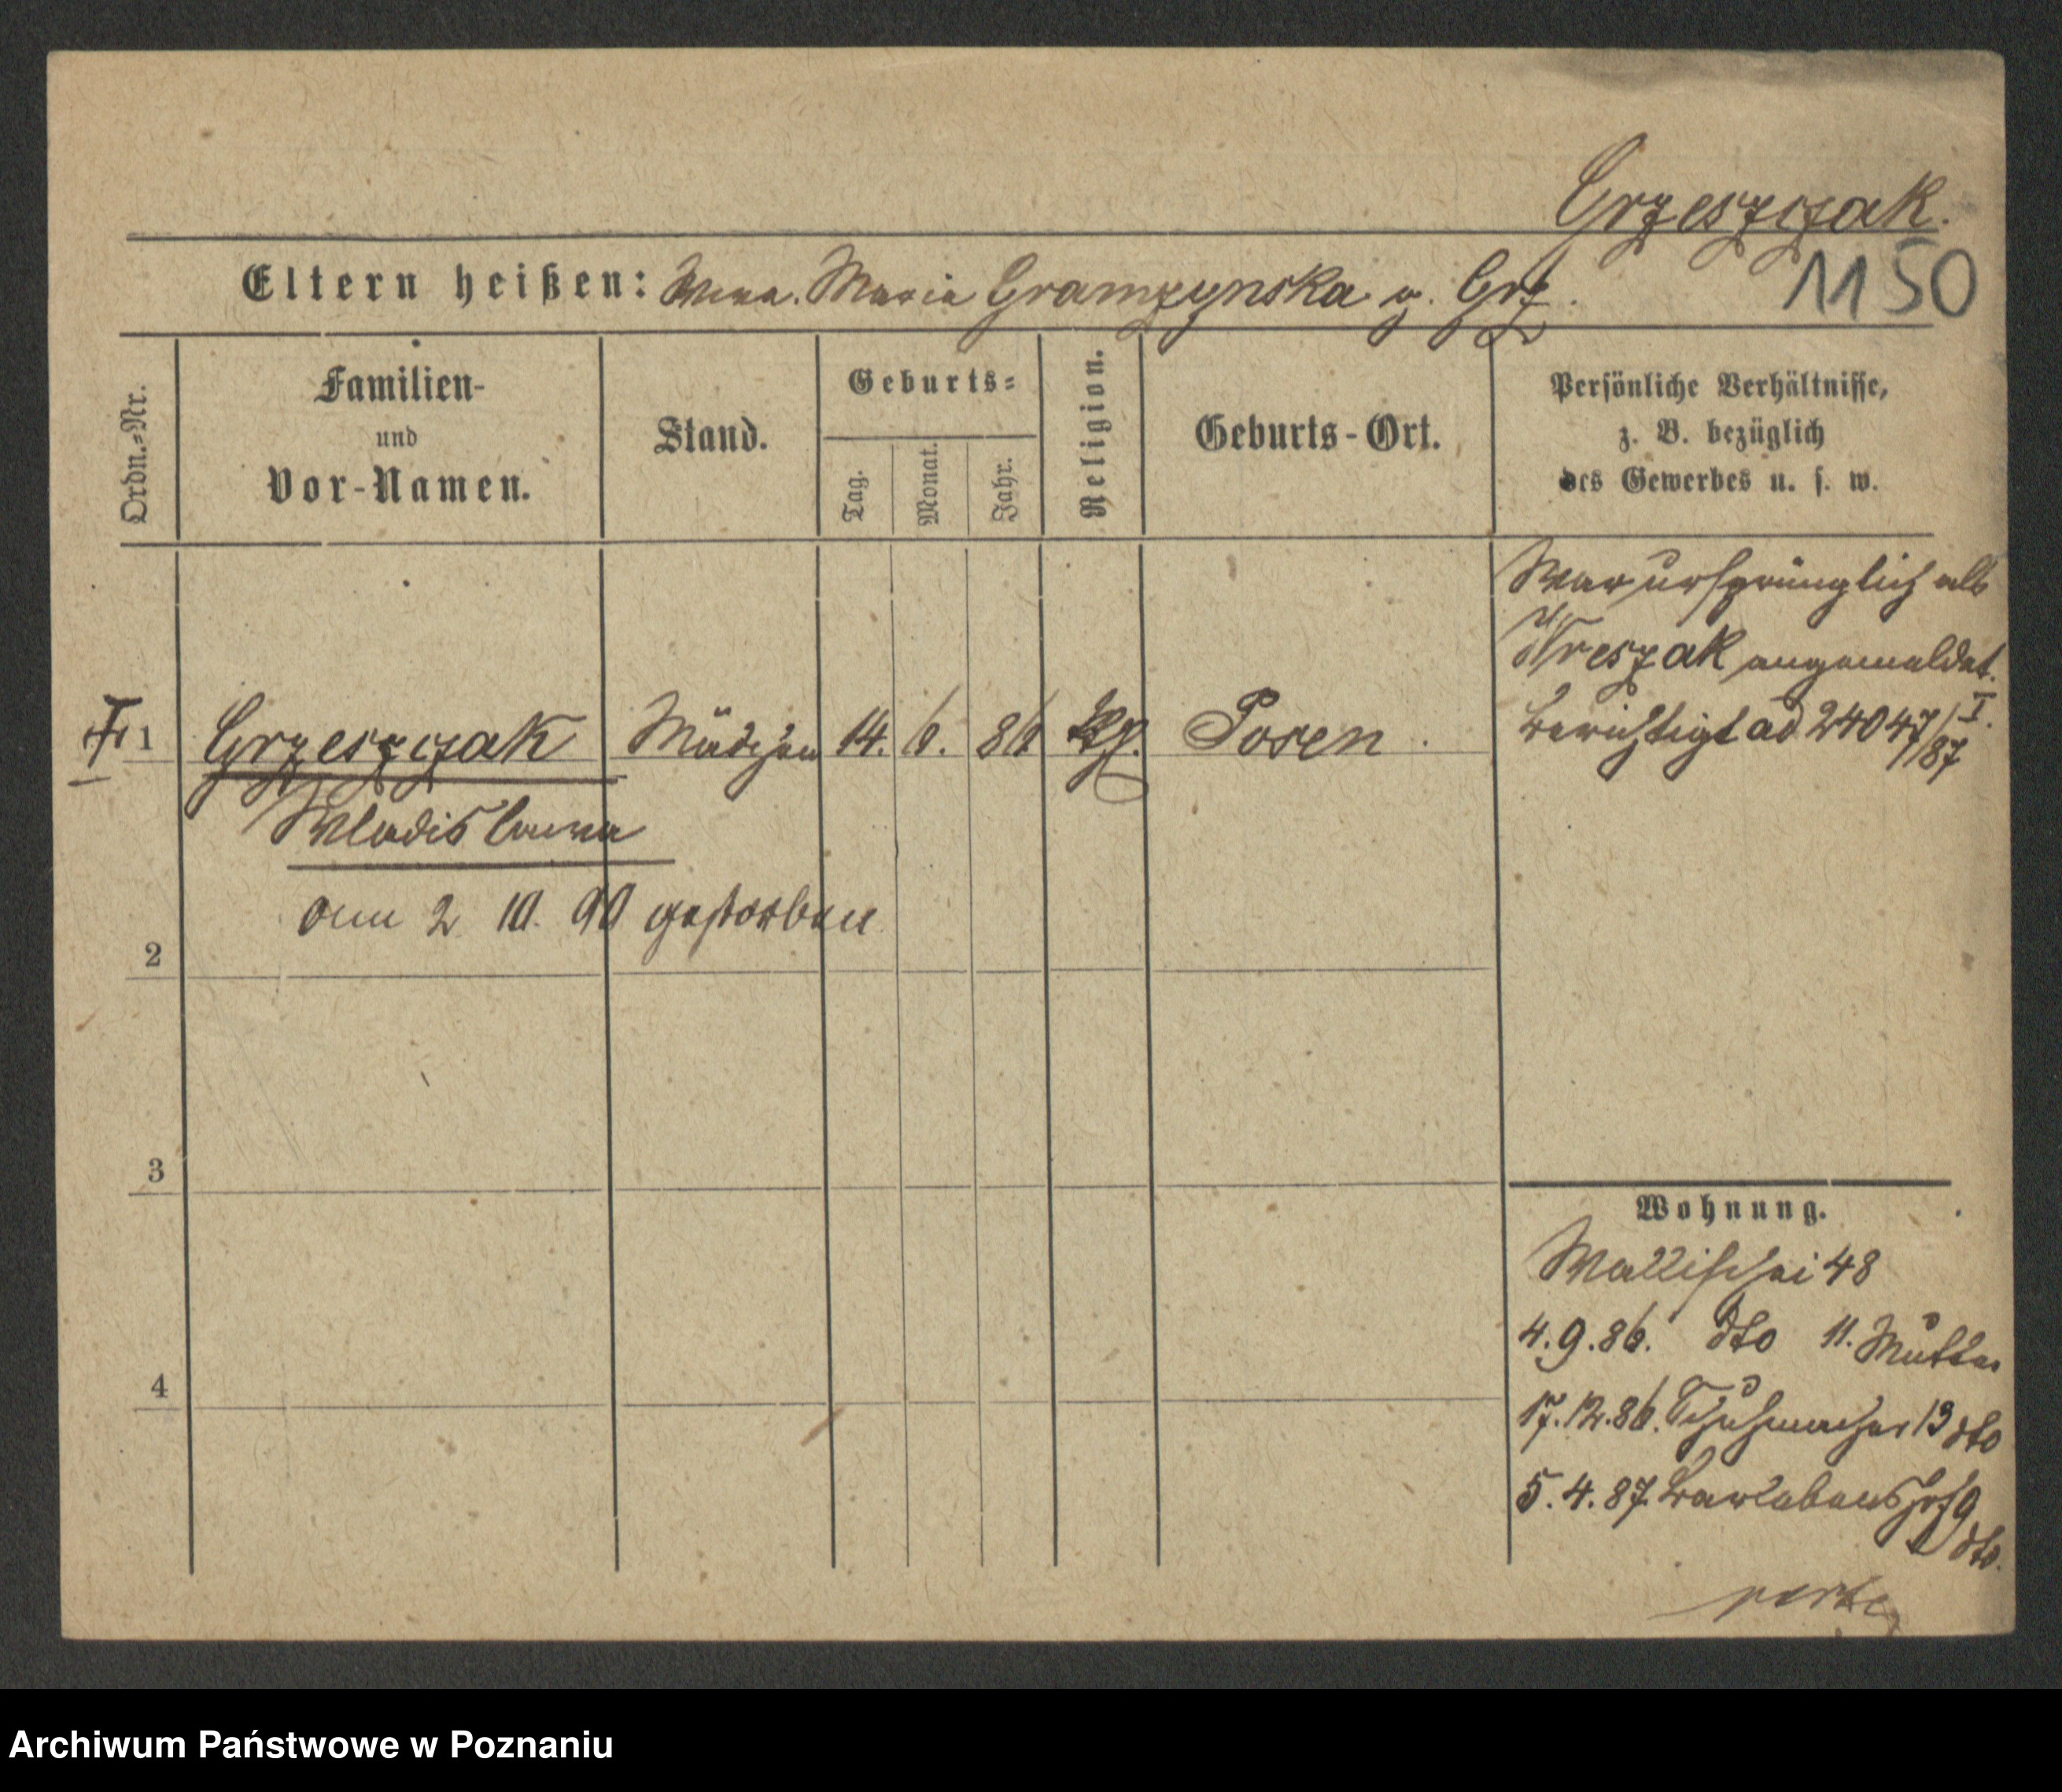 Grzeszczak.
Eltern heißen: Maria Gramzynska g. Grz.
1150
Ordn.-Nr.
Familien-
und
Vor-Namen.
Stand.
Geburts-
Tag.
Monat.
Jahr.
Religion.
Geburts-Ort.
Persönliche Verhältnisse,
z. B. bezüglich
des Gewerbes u. s. w.
War ursprünglich als
Wreszak angemeldet.
Berichtigt ad 24047/I.
/87
1 Grzeszczak Mädchen 14. 6. 86 Posen.
Wladislawa
am 2 10. 90 gestorben
2
3
4
Wohnung.
Wallischei 48
4.9.86. dto 11. Mutter
17.12.86. Schuhmacher 13 dto
5.4.87. Bartebenshof 9
dto.
Archiwum Państwowe w Poznaniu